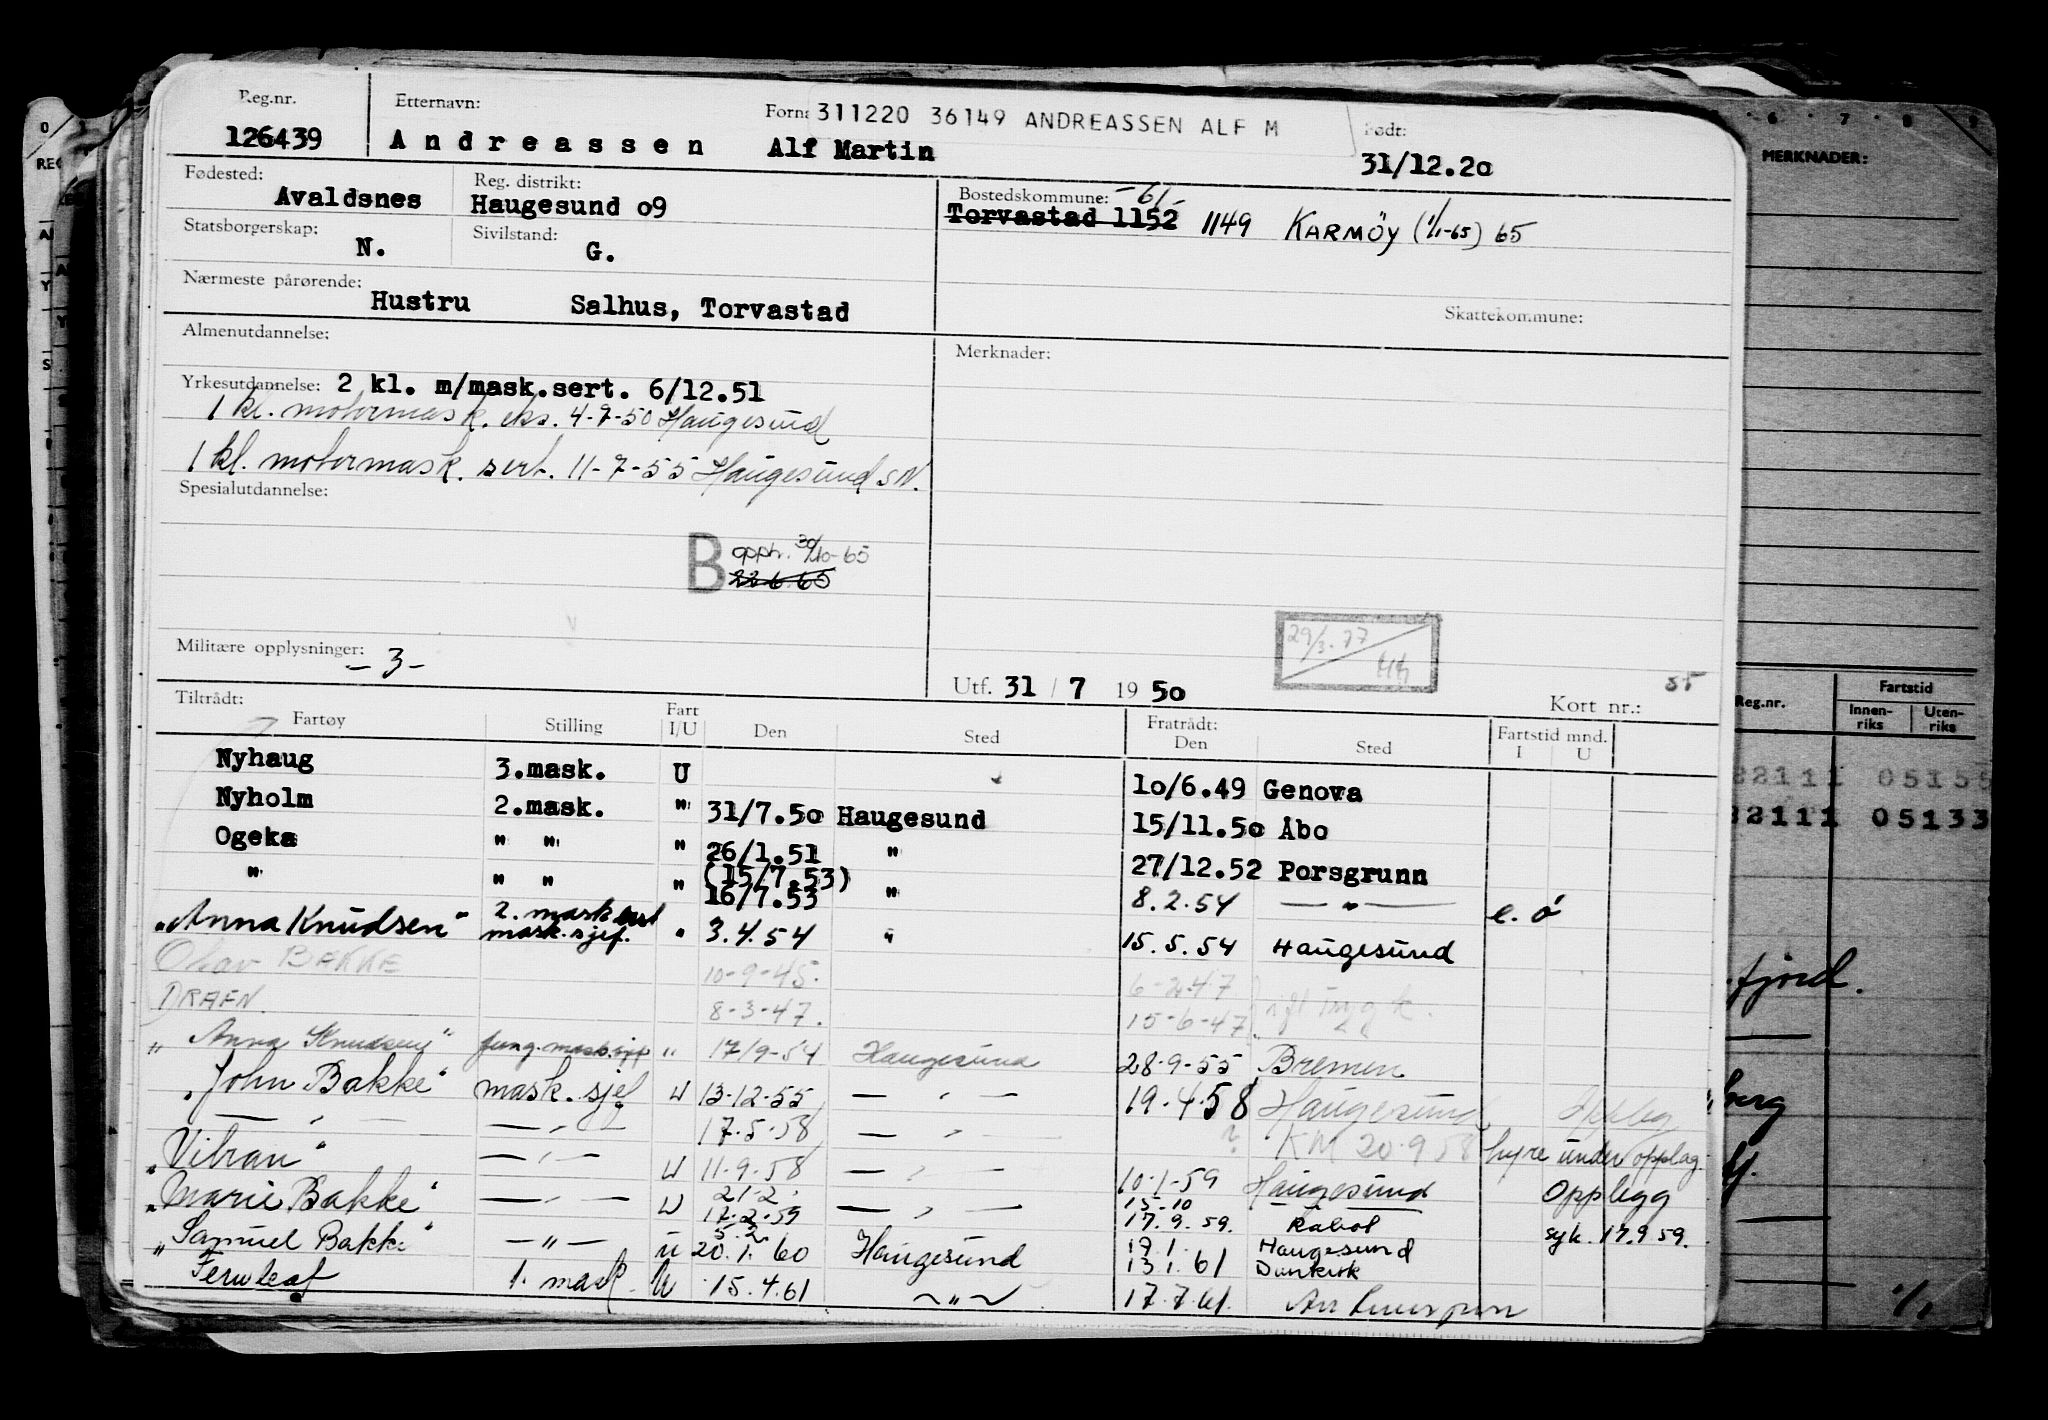 Reg.nr. Etternavn: Forn: 311220 36149 ANDREASSEN ALF M Født:
126439 Andreassen Alf Martin 31/12.2o
Fødested: Avaldsnes Reg. distrikt: Haugesund o9 Bostedskommune: -61-
Torvastad 1152 1149 KARMÖY (1/1-65) 65
Statsborgerskap: N. Sivilstand: G.
Nærmeste pårørende: Hustru Salhus, Torvastad Skattekommune:
Almenutdannelse: Merknader:
Yrkesutdannelse: 2 kl. m/mask.sert. 6/12.51
1 kl. motormask. eks. 4-7-50 Haugesund
1 kl. motormask. sert. 11-7-55 Haugesund SN.
Spesialutdannelse:
B opph. 30/10-65
22.6.65
29/3.77
Militære opplysninger: -3-
Utf. 31 / 7 19 5o Kort nr.:
Tiltrådt: Fratrådt: Fartstid mnd.
Fartøy Stilling Fart I/U Den Sted Den Sted I U
Nyhaug 3.mask. U 1o/6.49 Genova
Nyholm 2.mask. " 31/7.5o Haugesund 15/11.5o Åbo
Ogeka " " " 26/1.51 " 27/12.52 Porsgrunn
(15/7.53)
" " " " 16/7.53 " 8.2.54 — " — e. ó
2. mask
"Anna Knudsen" mask.sjef. " 3.4.54 " 15.5.54 Haugesund
Olav BEKKE 10-9-45. 6-2-47
DRAFN. 8-3-47. 15-6-47
" Anna Knudsen" fung.mask.sjef " 17/9-54 Haugesund 28-9-55 Bremen
"John Bakke" mask.sjef U 13-12-55 — " — 19.4.58 Haugesund Opplag
— " — — " — 17.5.58 — " — ? KM 20.9 58 hyre under opplag.
"Vibran" — " — U 11.9.58 — " — 10.1.59 Haugesund Opplegg
21.2. 15-10
"Marie Bakke" — " — U 17.2.59 — " — 17.9.59. Rabat syk. 17.9 59.
5.2. 19.1. Haugesund
"Samuel Bakke" — " — U 20.1.60 Haugesund 13.1.61 Dunkirk
Fernleaf 1. mask. U 15.4.61 — " — 17.7.61.
MERKNADER:
Reg.nr. Fartstid
Innen-riks Uten-riks
22111 05155
22111 05133
fjord.
berg